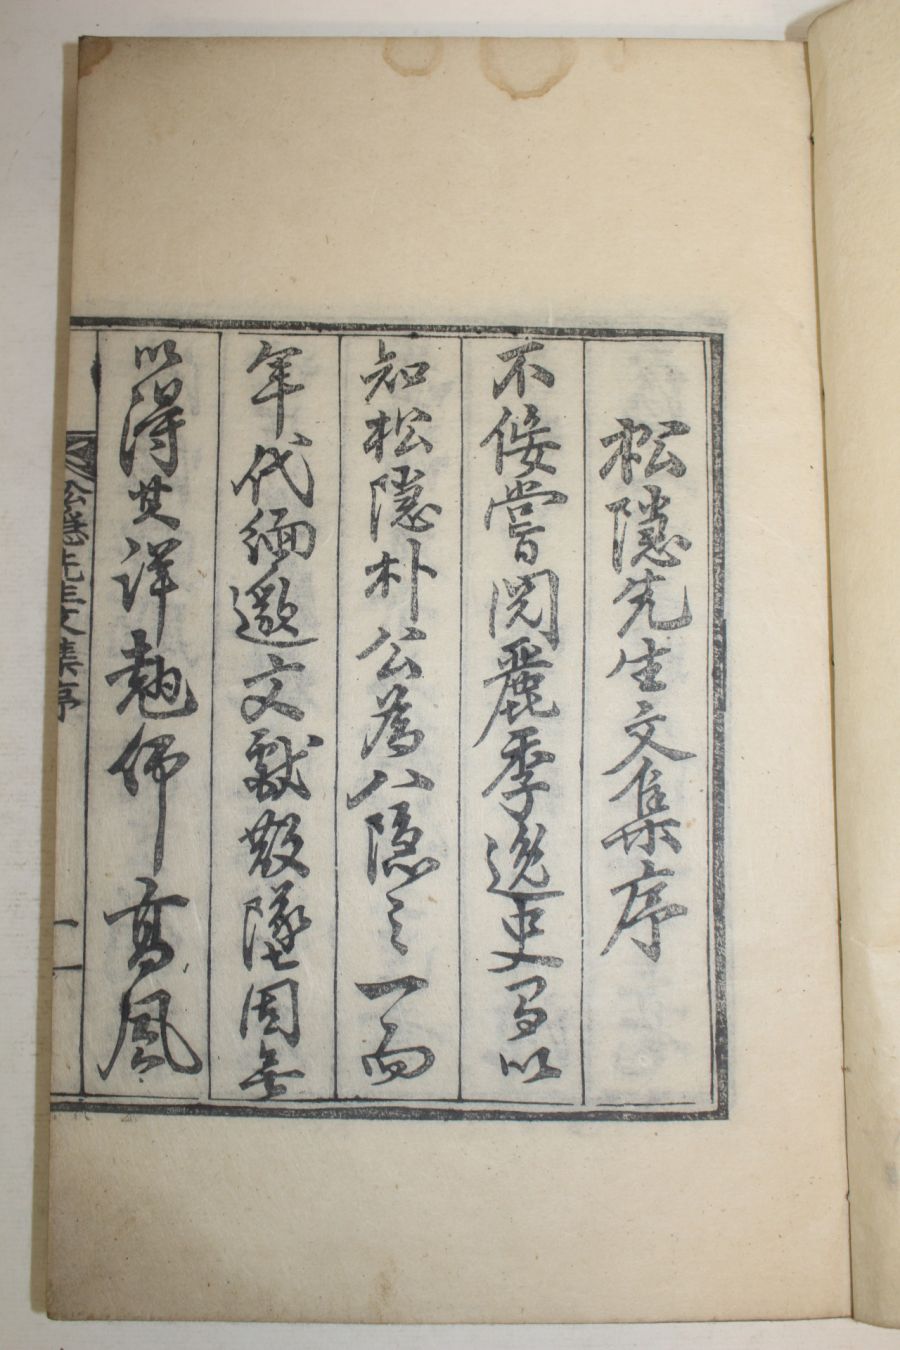 松隱先生文集序
不佞嘗閱麗季逸史有以
知松隱朴公為八隱之一而
年代緬邈文獻散墜固無
以得其詳翹仰高風
松隱先生文集序
一